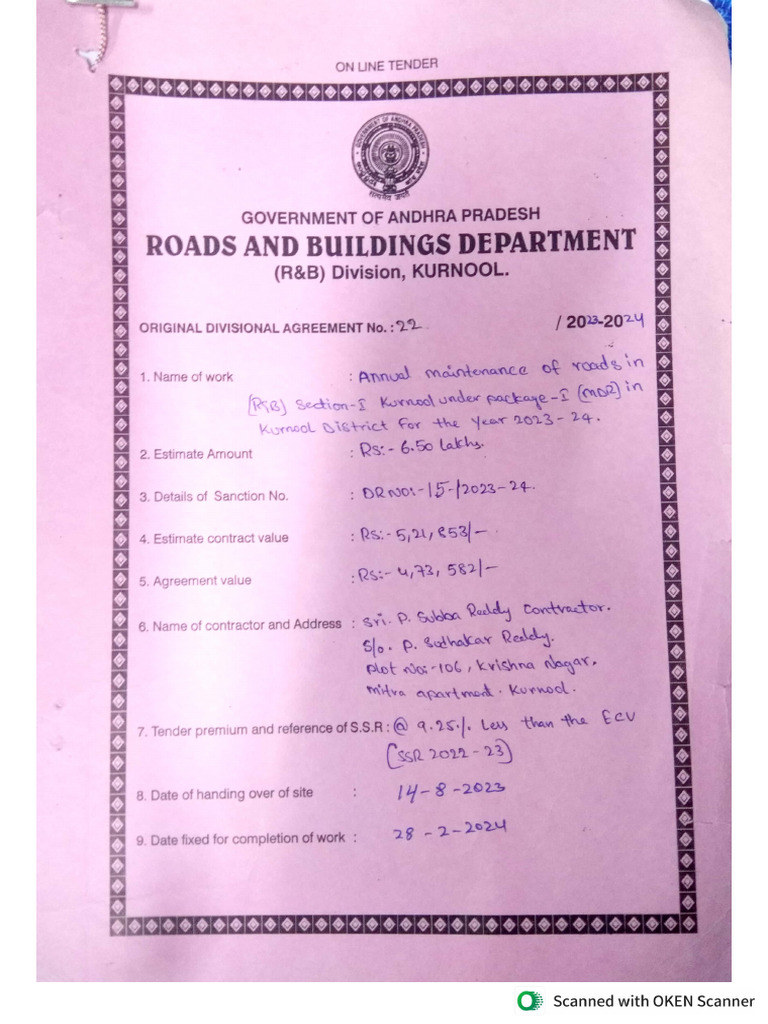 ON LINE TENDER
GOVERNMENT OF ANDHRA PRADESH
सत्यमेव जयते
GOVERNMENT OF ANDHRA PRADESH
ROADS AND BUILDINGS DEPARTMENT
(R&B) Division, KURNOOL.
ORIGINAL DIVISIONAL AGREEMENT No. : 22 / 2023-2024
1. Name of work : Annual maintenance of roads in
(R&B) Section-I Kurnool under package-I (MDR) in
Kurnool District for the Year 2023-24.
2. Estimate Amount : Rs:- 6.50 Lakhs.
3. Details of Sanction No. : DR NO:-15-/2023-24.
4. Estimate contract value : Rs:- 5,21,853/-
5. Agreement value : Rs:- 4,73,582/-
6. Name of contractor and Address : Sri. P. Subba Reddy Contractor.
S/o. P. Sudhakar Reddy.
Plot No:-106, Krishna Nagar,
Mitra apartment. Kurnool.
7. Tender premium and reference of S.S.R : @ 9.25% Less than the ECV
(SSR 2022-23)
8. Date of handing over of site : 14-8-2023
9. Date fixed for completion of work : 28-2-2024
Scanned with OKEN Scanner